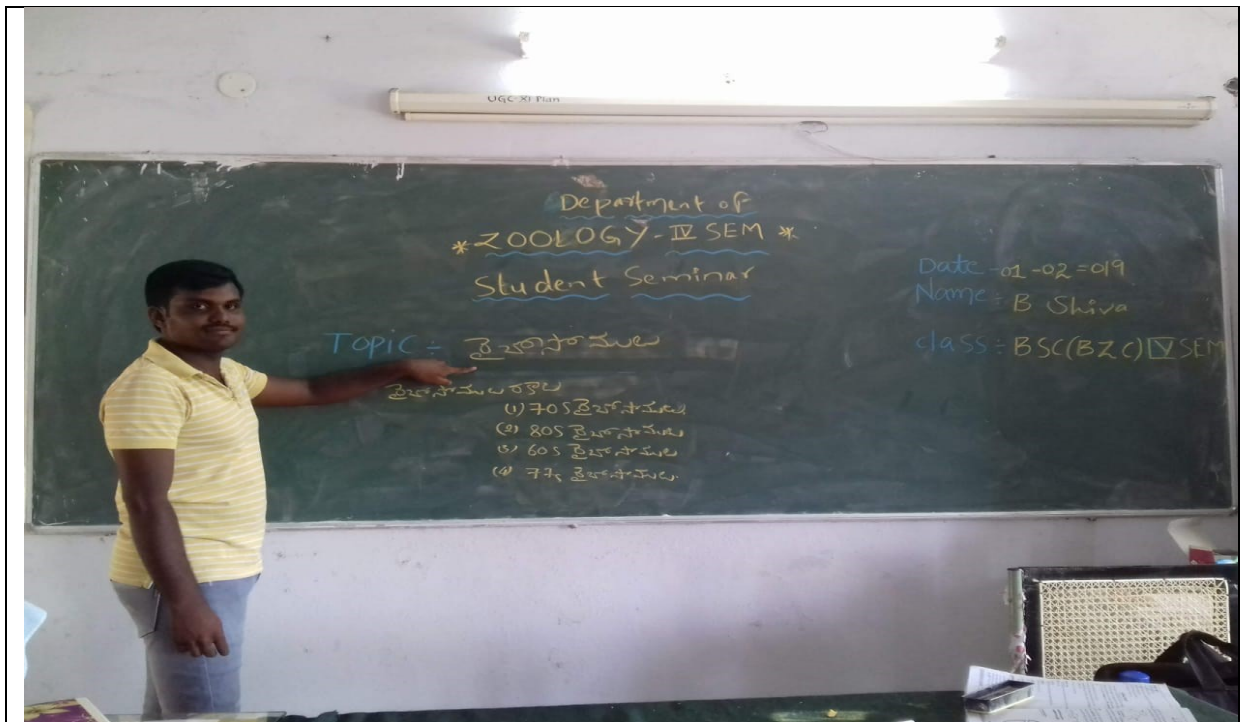 UGC XI Plan
Department of
* ZOOLOGY - IV SEM *
Student Seminar
Date - 01 - 02 = 019
Name : B Shiva
class : BSC (BZC) IV SEM
Topic :- రైబోసోములు
రైబోసోముల రకాలు
(1) 70S రైబోసోములు
(2) 80S రైబోసోములు
(3) 60S రైబోసోములు
(4) 77S రైబోసోములు.